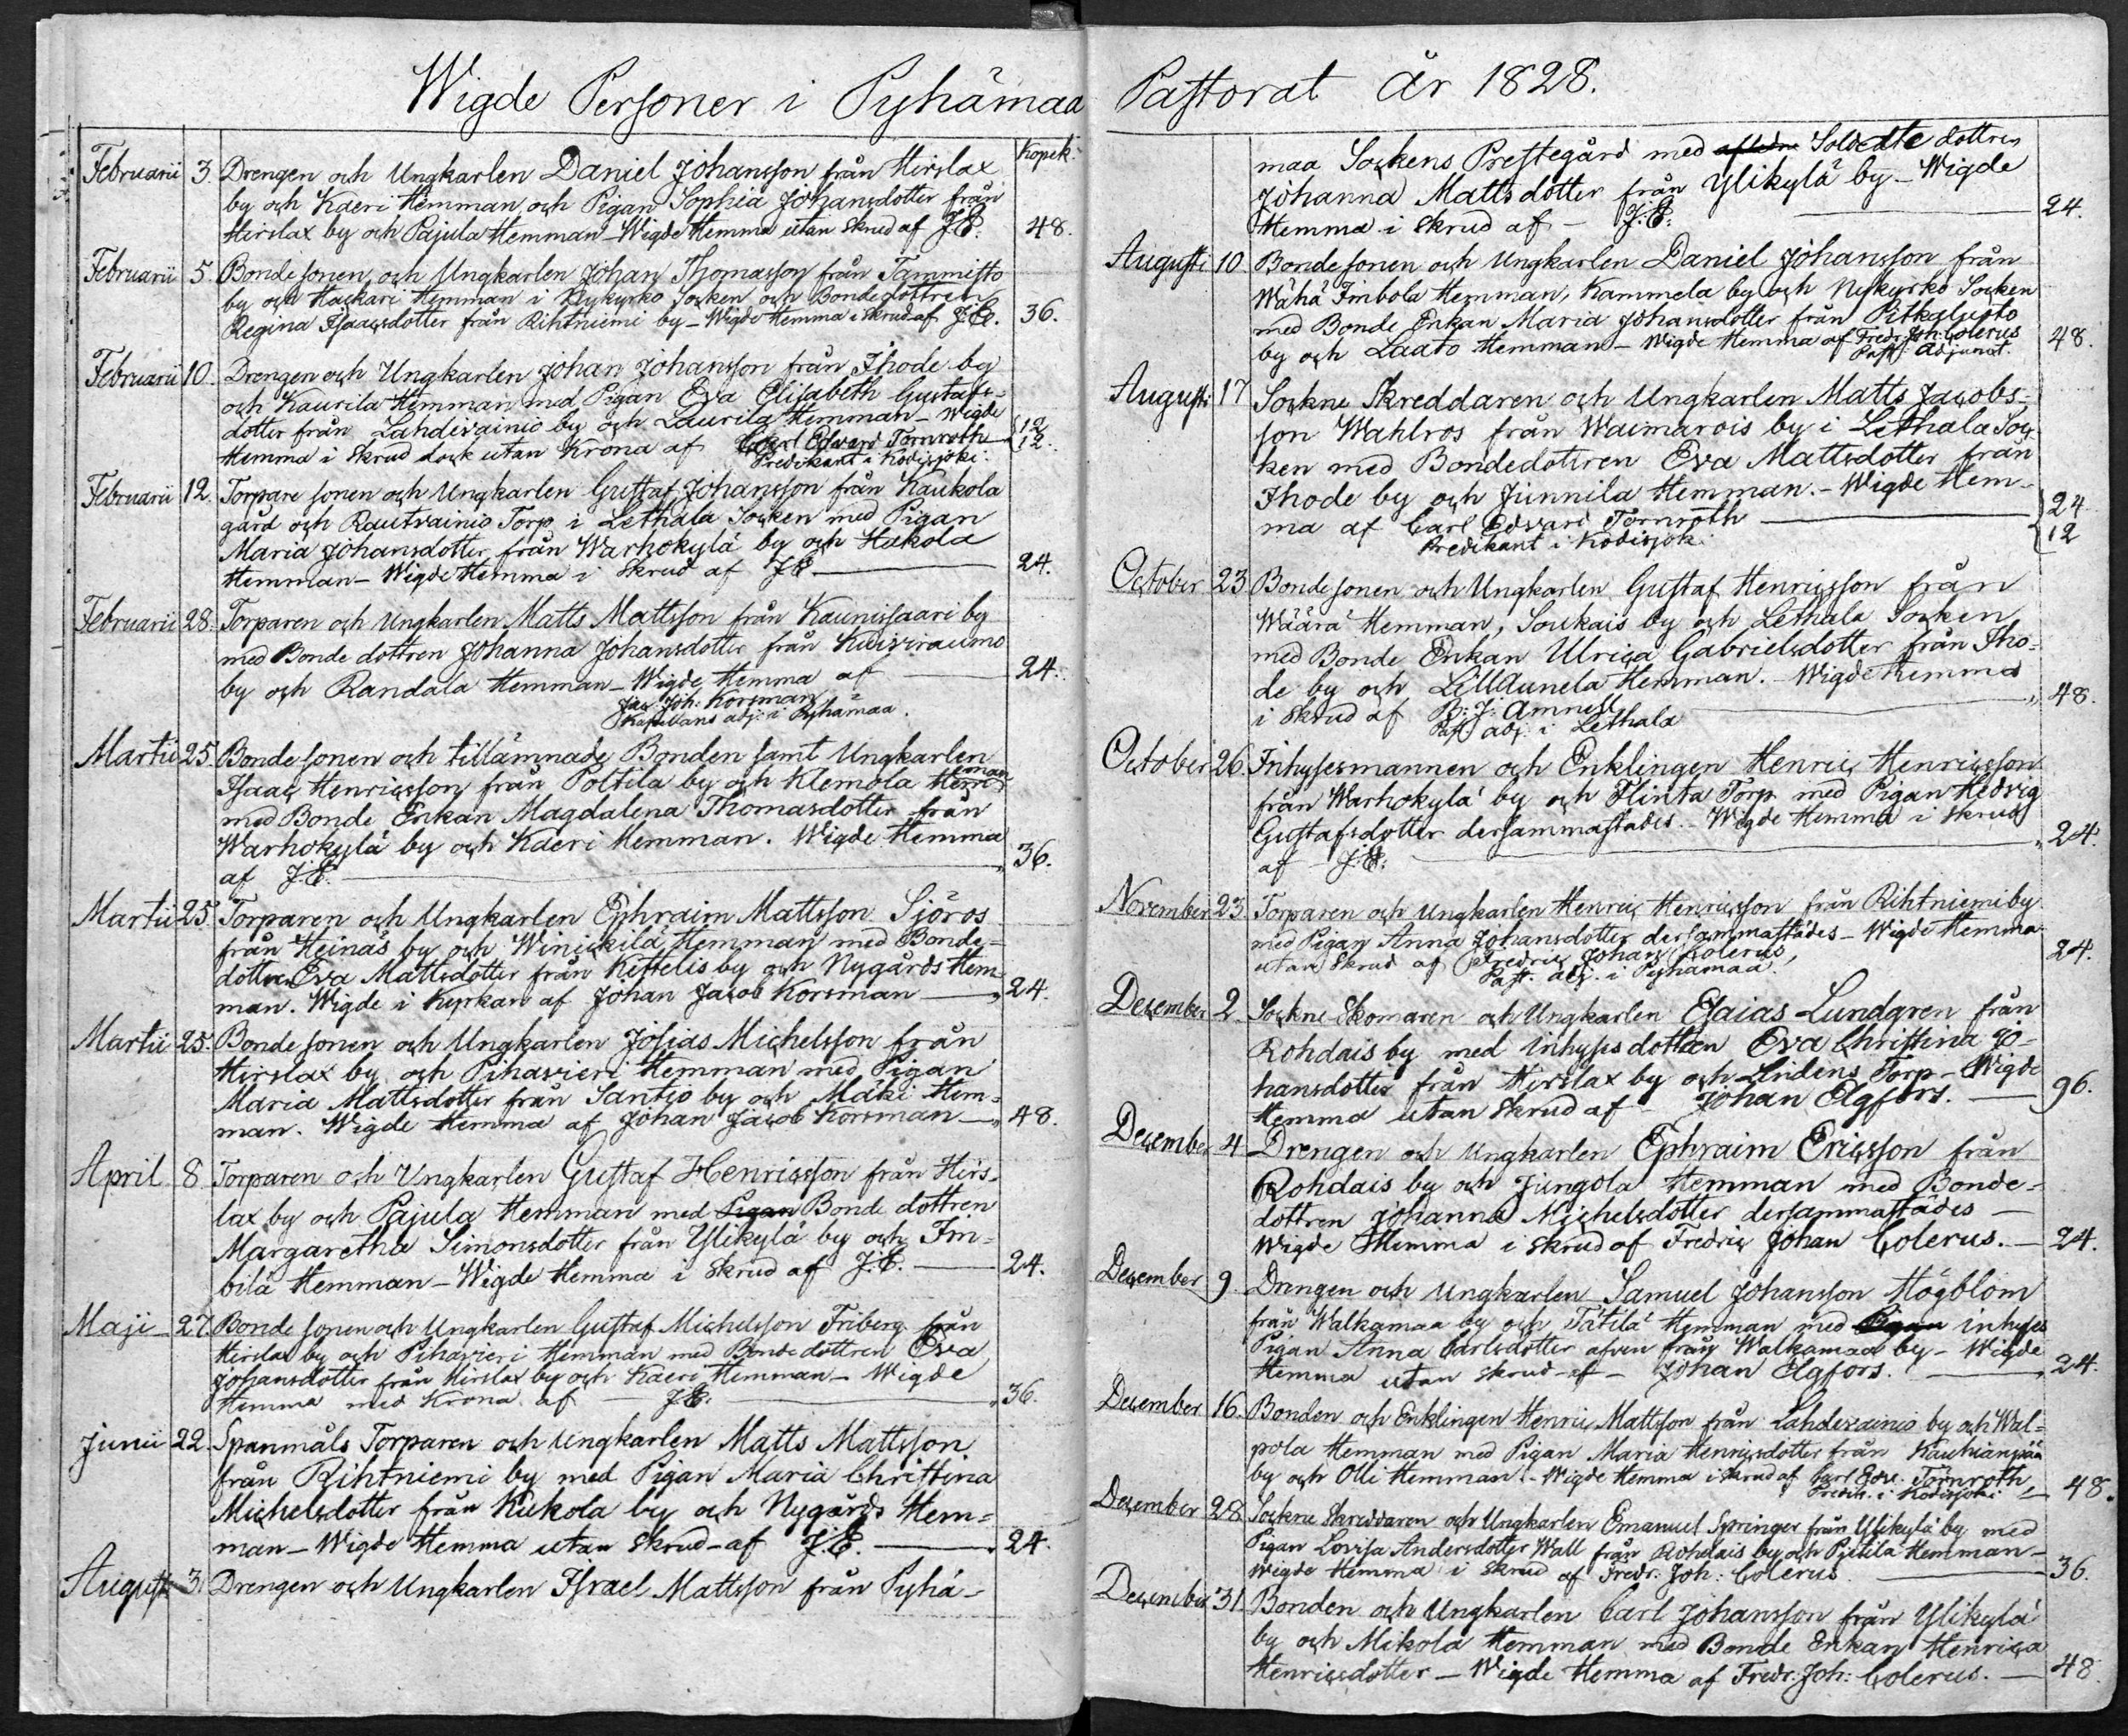 Wigde Personer i Pyhämaa
Kopek:
Februarii 3. Drengen och Ungkarlen Daniel Johansson från Hirslax
by och Kaeri Hemman, och Pigan Sophia Johansdotter från
Hirslax by och Pajula Hemman – Wigde Hemma utan Skrud af J.E. 48.
Februarii 5. Bondesonen och Ungkarlen Johan Thomasson från Tammisto
by och Haekari Hemman i Nykyrko Socken och Bondedottren
Regina Isaacsdotter från Rihtniemi by – Wigde Hemma i Skrud af J.E. 36.
Februarii 10. Drengen och Ungkarlen Johan Johansson från Ihode by
och Kaurila Hemman med Pigan Eva Elisabeth Gustafs-
dotter från Lahdevainio by och Laurila Hemman – Wigde 12
Hemma i Skrud dock utan Krona af Carl Edvard Tornroth 12.
Predikant i Kodisjoki.
Februarii 12. Torpare sonen och Ungkarlen Gustaf Johansson från Kaukola
gård och Rautvainio Torp i Lethala Socken med Pigan
Maria Johansdotter från Warhokylä by och Hakola
Hemman – Wigde Hemma i Skrud af J.E. 24.
Februarii 28. Torparen och Ungkarlen Matts Mattsson från Kaunissaari by
med Bonde dottren Johanna Johansdotter från Kuiviraumo
by och Randala Hemman – Wigde Hemma af 24.
Jac. Joh: Korsman
Kapellans adj: i Pyhämaa.
Martii 25. Bonde sonen och tillämnade Bonden samt Ungkarlen
Isaac Henricsson från Poltila by och Klemola Hemman
med Bonde Enkan Magdalena Thomasdotter från
Warhokylä by och Kaeri Hemman. Wigde Hemma
af J.E. 36.
Martii 25. Torparen och Ungkarlen Ephraim Mattsson Sjöros
från Heinäs by och Winickilä Hemman med Bonde-
dottren Eva Mattsdotter från Kettelis by och Nygårds Hem-
man. Wigde i Kyrkan af Johan Jacob Korsman 24.
Martii 25. Bonde sonen och Ungkarlen Josias Michelsson från
Hirslax by och Pihavieri Hemman med Pigan
Maria Mattsdotter från Santio by och Mäki Hem-
man. Wigde Hemma af Johan Jacob Korsman 48.
April 8 Torparen och Ungkarlen Gustaf Henricsson från Hirs-
lax by och Pajula Hemman med Pigan Bonde dottren
Margaretha Simonsdotter från Ylikylä by och Im-
bilä Hemman – Wigde Hemma i Skrud af J.E. 24.
Maji 27. Bonde sonen och Ungkarlen Gustaf Michelsson Friberg från
Hirslax by och Pihavieri Hemman med Bonde dottren Eva
Johansdotter från Hirslax by och Kaeri Hemman – Wigde
Hemma med Krona af J.E. 36.
Junii 22. Spanmåls Torparen och Ungkarlen Matts Mattsson
från Rihtniemi by med Pigan Maria Christina
Michelsdotter från Kukola by och Nygårds Hem-
man – Wigde Hemma utan Skrud – af J.E. 24.
Augusti 3. Drengen och Ungkarlen Israel Mattsson från Pyhä-
Pastorat År 1828.
maa Sockens Prestegård med Soldate dottren
Johanna Mattsdotter från Ylikylä by – Wigde
Hemma i Skrud af – J.E. 24.
Augusti 10. Bonde sonen och Ungkarlen Daniel Johansson från
Wähä Imbola Hemman, Kammela by och Nykyrko Socken
med Bonde Enkan Maria Johansdotter från Pitkäluoto
by och Laato Hemman – Wigde Hemma af Fredr. Joh: Colerus 48.
Past. Adjunct.
Augusti 17 Sockne Skreddaren och Ungkarlen Matts Jacobs-
son Wahlros från Waimarois by i Lethala Soc-
ken med Bondedottren Eva Mattsdotter från
Ihode by och Junnila Hemman. – Wigde Hem-
ma af Carl Edvard Tornroth 24
Predikant i Kodisjoki 12
October 23 Bonde sonen och Ungkarlen Gustaf Henricsson från
Wäärä Hemman, Soukais by och Lethala Socken
med Bonde Enkan Ulrica Gabrielsdotter från Iho-
de by och LillAunela Hemman. – Wigde Hemma
i Skrud af B: J: Amnell 48.
Past. adj. i Lethala
October 26. Inhysesmannen och Enklingen Henric Henricsson
från Warhokylä by och Flinta Torp med Pigan Hedvig
Gustafsdotter dersammastädes – Wigde Hemma i Skrud
af – J.E. 24.
November 23. Torparen och Ungkarlen Henric Henricsson från Rihtniemi by
med Pigan Anna Johansdotter dersammastädes – Wigde Hemma
utan Skrud af Fredric Johan Colerus, 24.
Past. adj. i Pyhämaa.
December 2. Sockne Skomaren och Ungkarlen Esaias Lundgren från
Rohdais by med Inhyses dottren Eva Christina Jo-
hansdotter från Hirslax by och Lindens Torp – Wigde
Hemma utan Skrud af – Johan Elgfors. 96.
December 4 Drengen och Ungkarlen Ephraim Ericsson från
Rohdais by och Jungola Hemman med Bonde-
dottren Johanna Michelsdotter dersammastädes –
Wigde Hemma i Skrud af Fredric Johan Colerus. 24.
December 9. Drengen och Ungkarlen Samuel Johansson Högblom
från Walkamaa by och Tätilä Hemman med Pigan inhyses
Pigan Anna Carlsdotter afven från Walkamaa by – Wigde
Hemma utan Skrud – af – Johan Elgfors. 24.
December 16. Bonden och Enklingen Henric Mattsson från Lahdevainio by och Wal-
pola Hemman med Pigan Maria Henricsdotter från Kauhianpää
by och Olli Hemman – Wigde Hemma i Skrud af Carl Edv. Törnroth, 48.
Predik. i Kodisjoki
December 28 Sockne Skreddaren och Ungkarlen Emanuel Springer från Ylikylä by med
Pigan Lovisa Andersdotter Wall från Rohdais by och Pietilä Hemman –
Wigde Hemma i Skrud af Fredr. Joh: Colerus 36.
December 31 Bonden och Ungkarlen Carl Johansson från Ylikylä
by och Mikola Hemman med Bonde Enkan Henrica
Henricsdotter – Wigde Hemma af Fredr. Joh: Colerus. 48